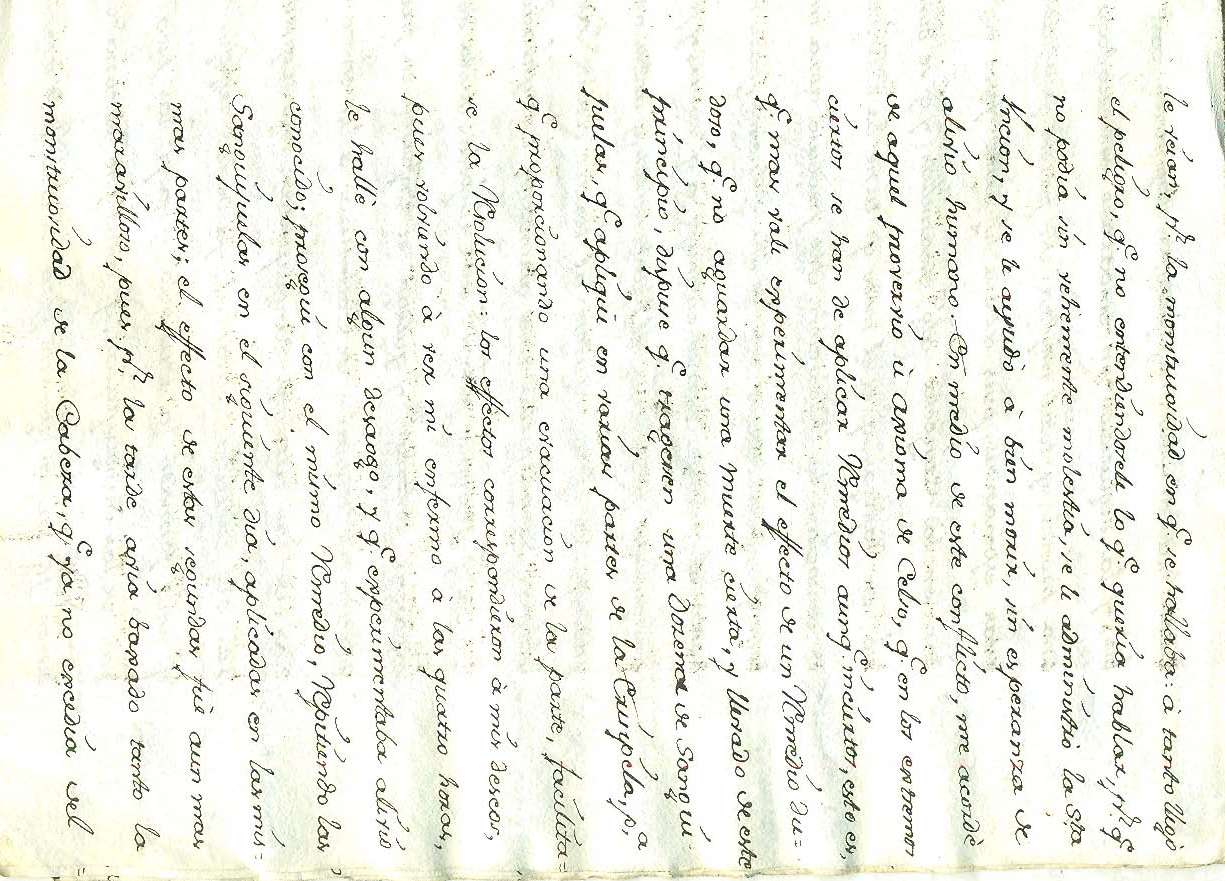 le veian, pr. la monstruosidad en q.e se hallaba: à tanto llegò
el peligro, q.e no entendiendosele lo q.e queria hablar, pr. q.e
no podia sin vehemente molestia, se le administrò la Sta
Vncion, y se le ayudò à bien morir, sin esperanza de
alivio humano. En medio de este conflicto, me acordè
de aquel proverbio ù axioma de Celso, q.e en los extremos
ciertos se han de aplicar Remedios aunq.e inciertos, esto es,
q.e mas vale experimentar el effecto de un Remedio du=
doso, q.e no aguardar una muerte cierta, y llevado de este
principio, dispuse q.e traxesen una docena de Sangui
juelas, q.e apliquè en varias partes de la Erisipela, pa
q.e proporcionando una evacuacion de la parte, facilita=
se la Resolucion: los effectos correspondieron à mis deseos,
pues volviendo à ver mi enfermo à las quatro horas,
le hallè con algun desaogo, y q.e experimentaba alivio
conocido; proseguì con el mismo Remedio, Repitiendo las
Sanguijuelas, en el siguiente dia, aplicadas en las mis=
mas partes; el effecto de estas segundas, fuè aun mas
maravilloso, pues pr. la tarde, avia baxado tanto la
monstruosidad de la Cabeza, q.e ya no excedia del